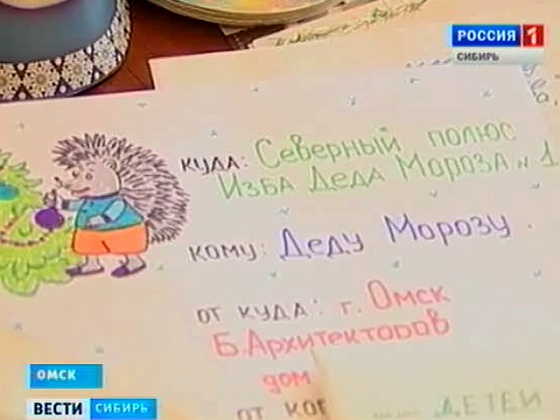 РОССИЯ 1
СИБИРЬ
КУДА: СЕВЕРНЫЙ ПОЛЮС
ИЗБА ДЕДА МОРОЗА №1
КОМУ: ДЕДУ МОРОЗУ
ОТ КУДА: г. ОМСК
Б. АРХИТЕКТОРОВ
ДОМ
ОТ
ДЕТЕЙ
ОМСК
ВЕСТИ СИБИРЬ